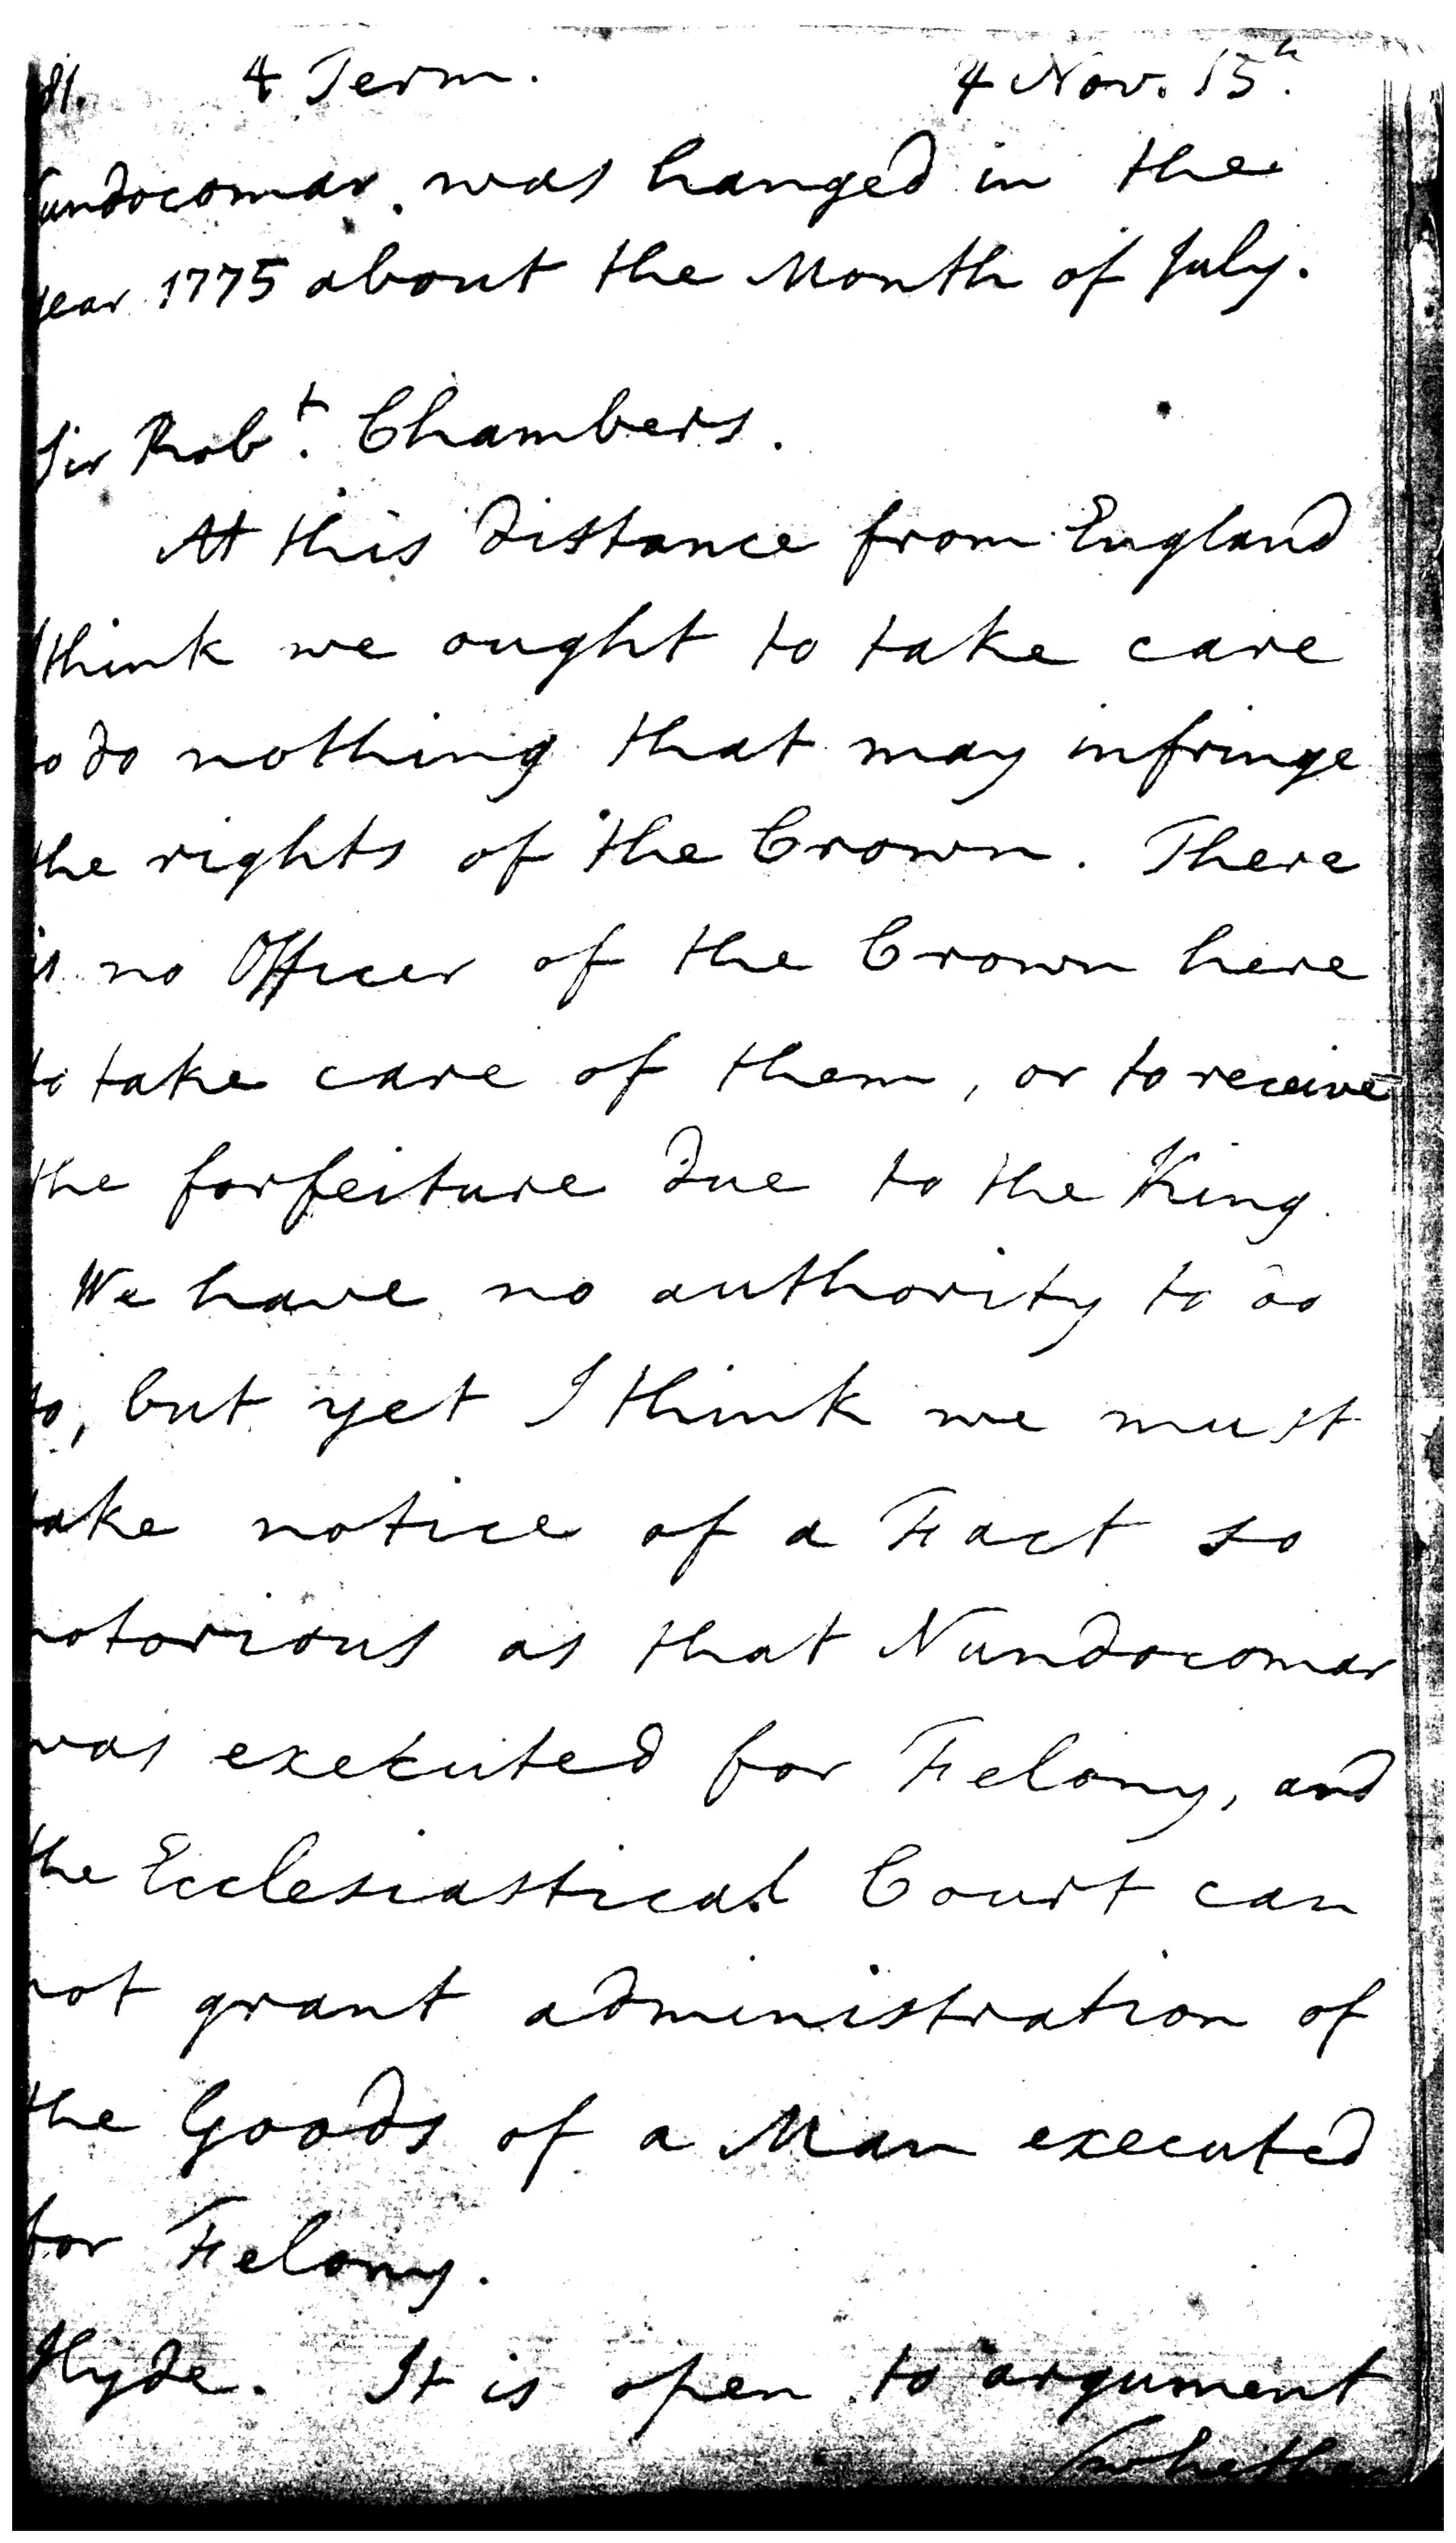 81. 4 Term. 4 Nov. 15h.
undocomar. was hanged in the
year 1775 about the Month of July.
Sir Robt. Chambers.
At this distance from England
think we ought to take care
to do nothing that may infringe
the rights of the Crown. There
is no Officer of the Crown here
to take care of them, or to receive
the forfeiture due to the King.
We have no authority to do
so, but yet I think we must
take notice of a Fact so
notorious as that Nundocomar
was executed for Felony, and
the Ecclesiastical Court can
not grant administration of
the Goods of a Man executed
for Felony.
Hyde. It is open to argument
whether